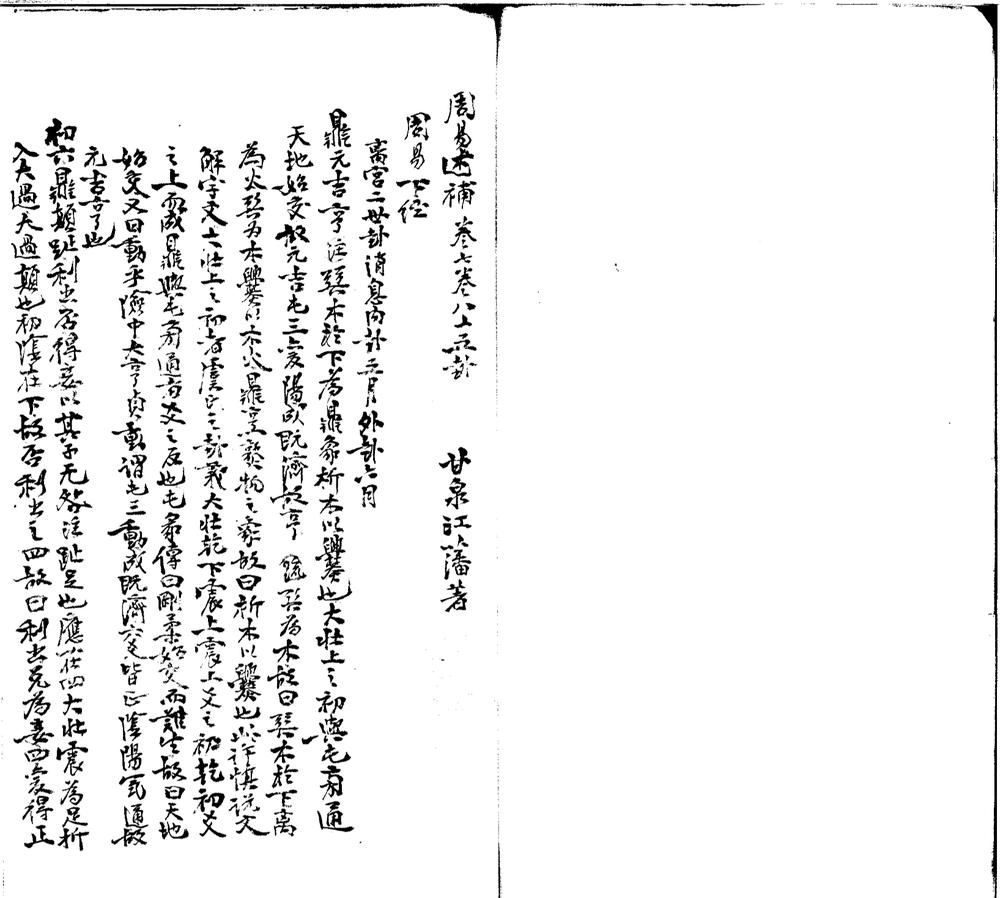 周易述補 卷七卷八上五卦 甘泉江藩著
周易下經
離宮二世卦消息內卦五月外卦六月
鼎元吉亨注巽木於下為鼎象析木以爨也大壯上之初與屯旁通
天地始交故元吉屯三變陽歺既濟故亨 疏巽為木故曰巽木於下離
為火巽為木爨以木火鼎烹飪物之象故曰析木以爨也此許慎說文
解字文六壯上之初者虞氏之卦義大壯乾下震上震上爻之初乾初爻
之上而成鼎與屯旁通者爻之反也屯彖傳曰剛柔始交而難生故曰天地
始交又曰動乎險中大亨貞動謂屯三動成既濟六爻皆正陰陽氣通故
元吉亨也
初六鼎顛趾利出否得妾以其子无咎注趾足也應在四大壯震為足折
入大過大過顛也初陰在下故否利出之四故曰利出兌為妾四變得正